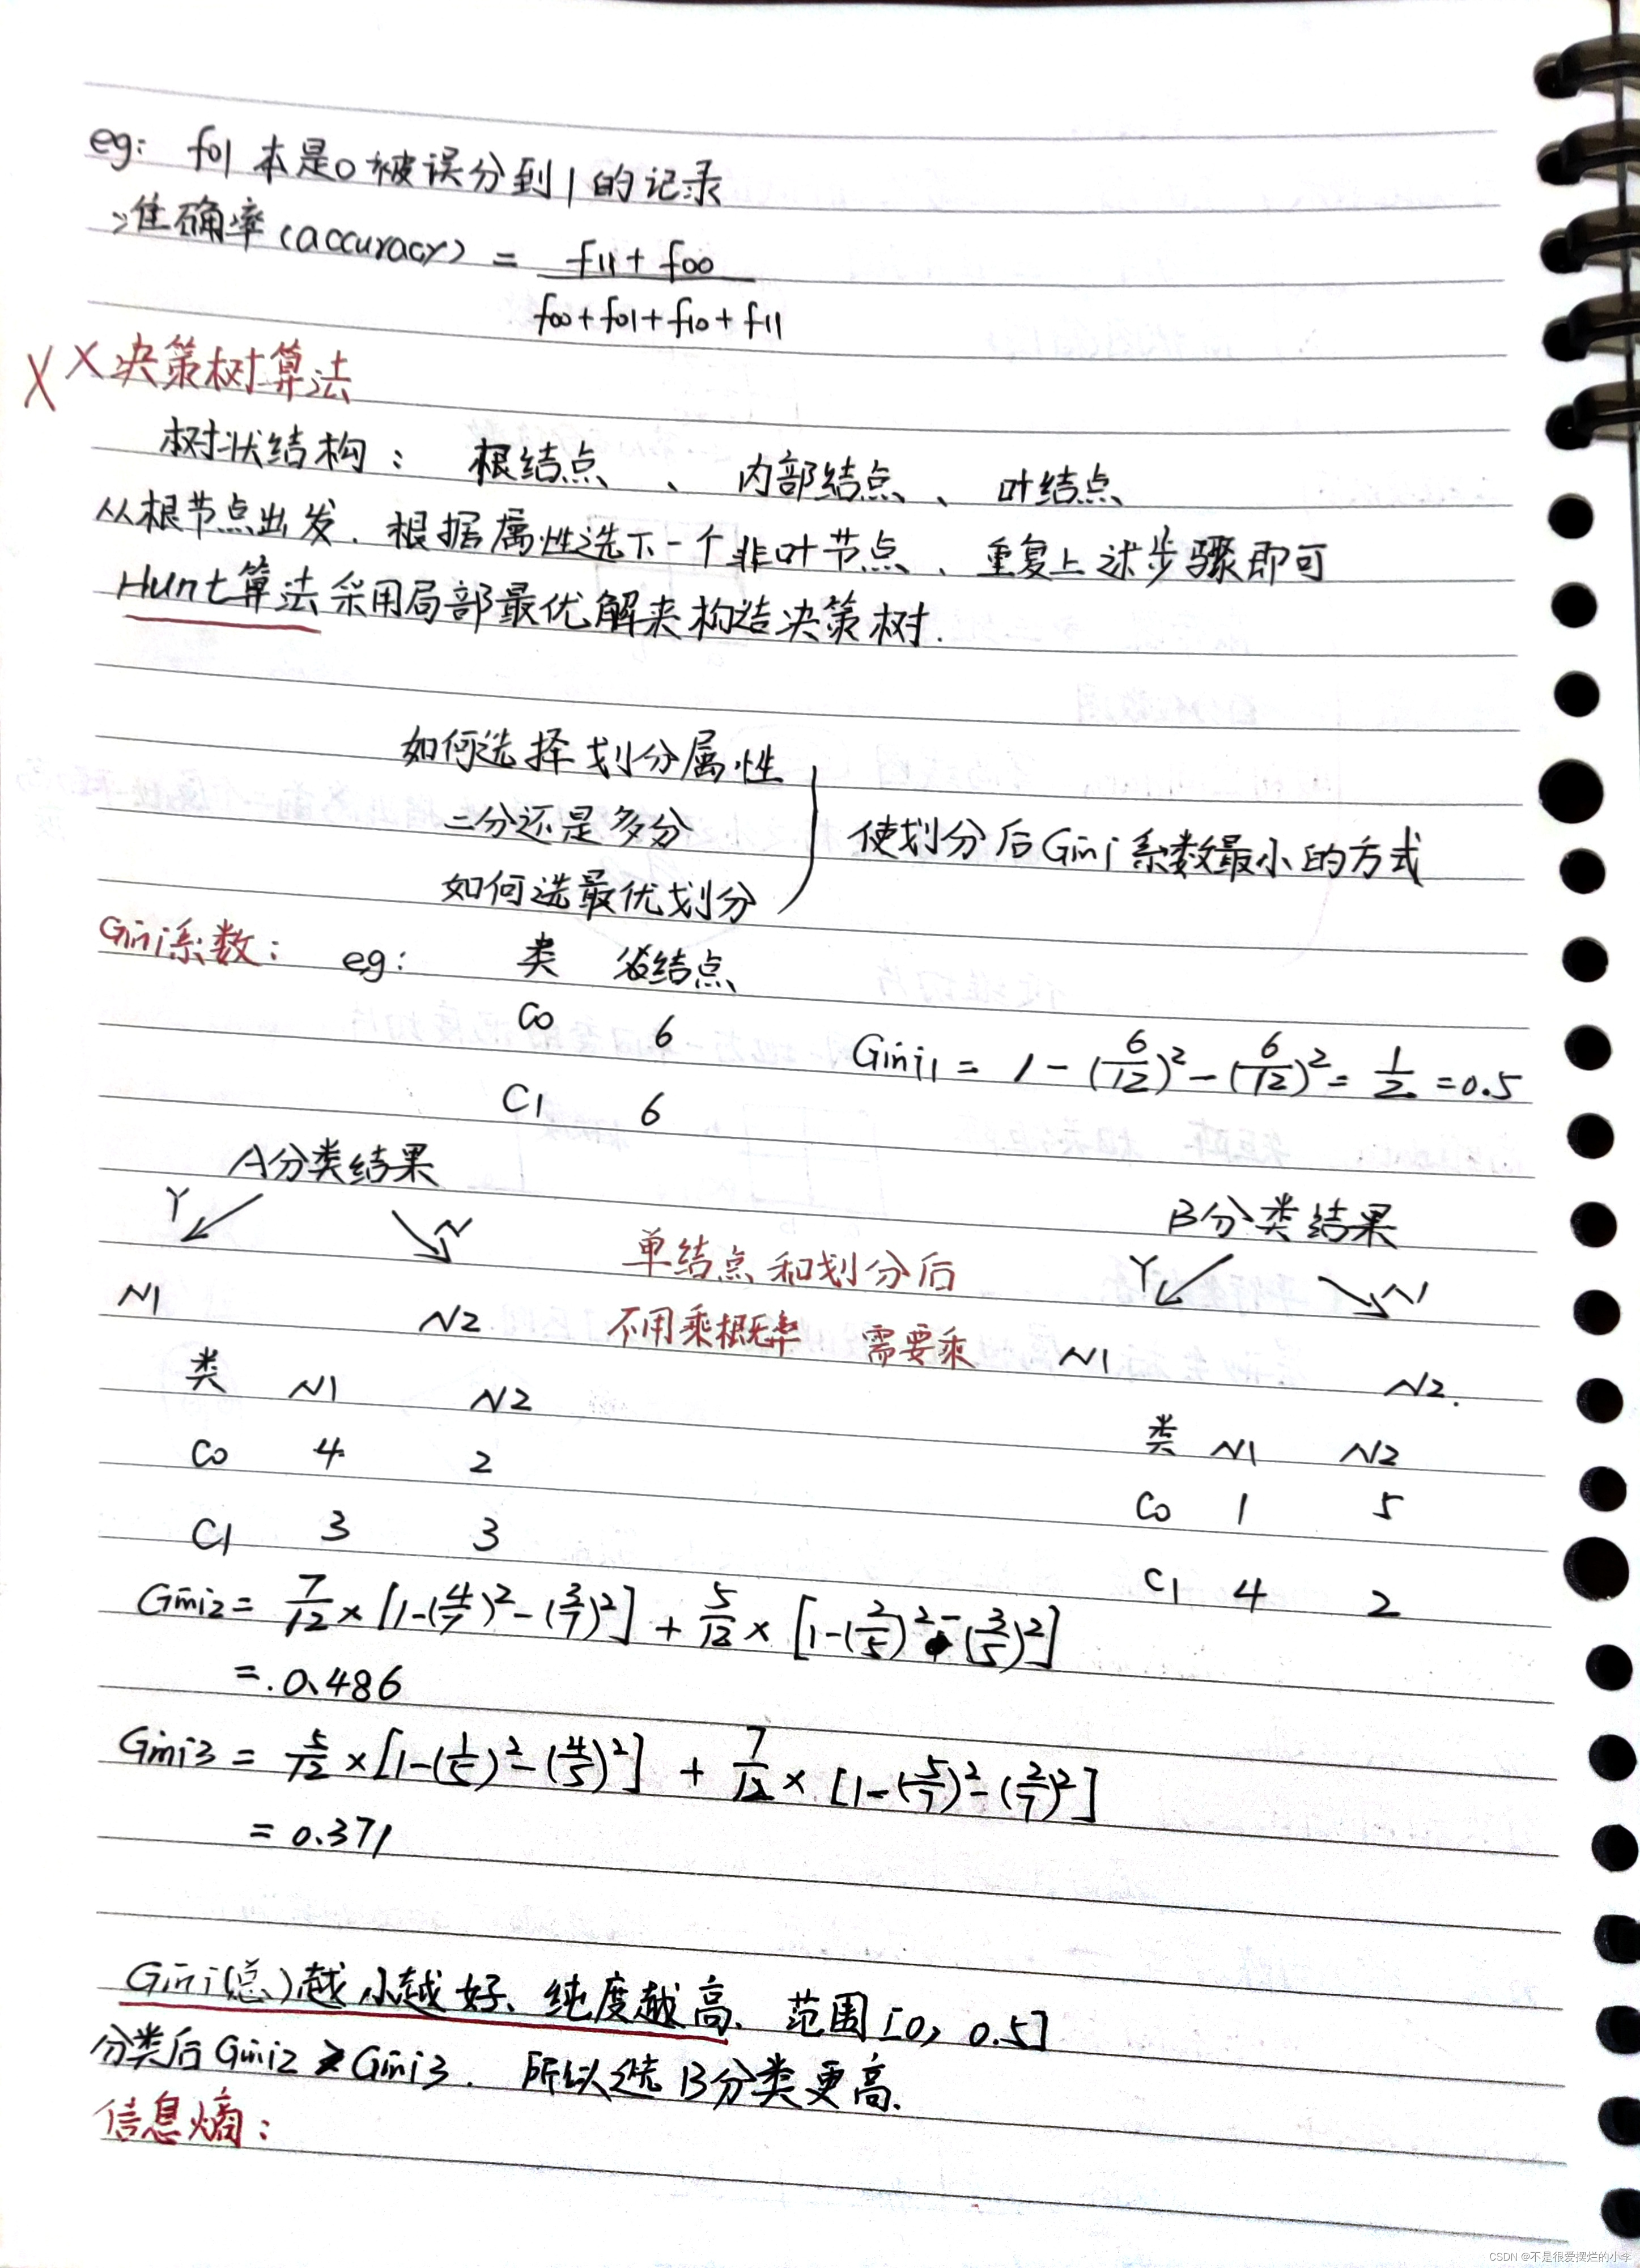 eg: f01 本是0被误分到1的记录
准确率(accuracy) = (f11 + f00) / (f00 + f01 + f10 + f11)
X X 决策树算法
树状结构: 根结点、内部结点、叶结点
从根节点出发. 根据属性选下一个非叶节点、重复上述步骤即可
Hunt算法采用局部最优解来构造决策树.
如何选择划分属性
二分还是多分
如何选最优划分
使划分后Gini系数最小的方式
Gini系数: eg: 类 父结点
C0 6
C1 6
Gini1 = 1 - (6/12)² - (6/12)² = 1/2 = 0.5
A分类结果
Y N
N1 N2
单结点和划分后
不用乘概率 需要乘
B分类结果
Y N
N1 N2.
类 N1 N2
C0 4 2
C1 3 3
类 N1 N2
C0 1 5
C1 4 2
Gini2 = 7/12 × [1-(4/7)² - (3/7)²] + 5/12 × [1-(2/5)² - (3/5)²]
= 0.486
Gini3 = 5/12 × [1-(1/5)² - (4/5)²] + 7/12 × [1-(5/7)² - (2/7)²]
= 0.371
Gini(总)越小越好、纯度越高、范围[0, 0.5]
分类后Gini2 > Gini3. 所以选B分类更高.
信息熵:
CSDN @不是很爱摆烂的小李